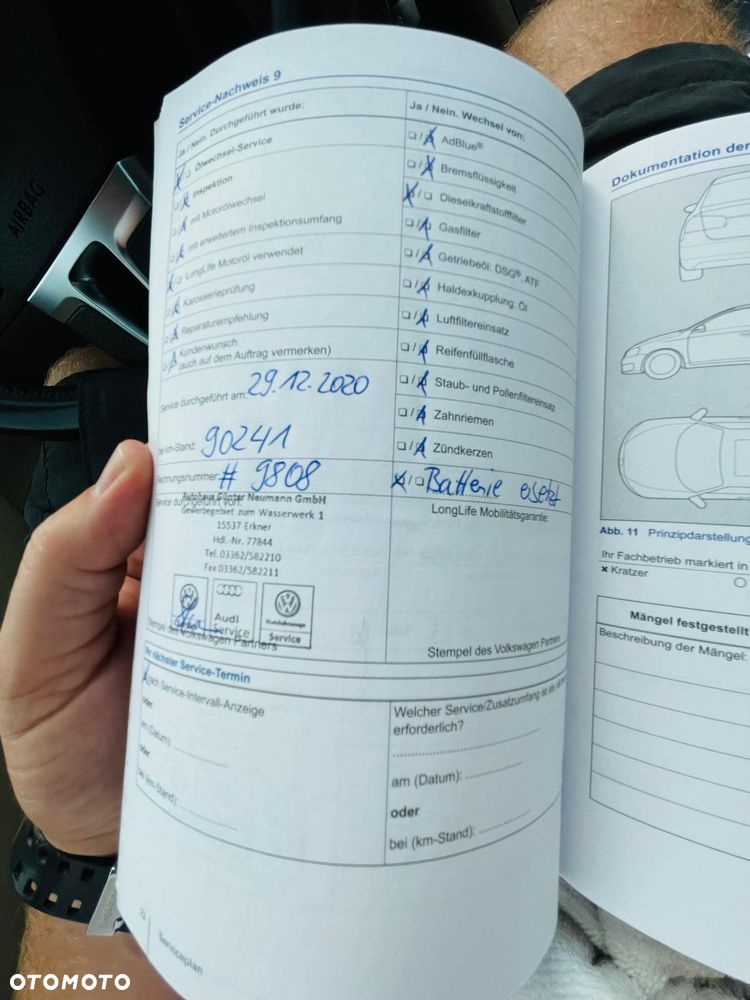 AIRBAG
Service-Nachweis 9
Ja / Nein. Durchgeführt wurde:
Ölwechsel-Service
Inspektion
mit Motorölwechsel
mit erweitertem Inspektionsumfang
LongLife Motoröl verwendet
Karosserieprüfung
Reparaturempfehlung
Kundenwunsch
(auch auf dem Auftrag vermerken)
Service durchgeführt am: 29.12.2020
bei km-Stand: 90241
Rechnungsnummer: # 9808
Service durchgeführt von:
Autohaus Günter Naumann GmbH
Gewerbegebiet zum Wasserwerk 1
15537 Erkner
Hdl.-Nr. 77844
Tel. 03362/582210
Fax 03362/582211
Audi
Service
Nutzfahrzeuge
Service
Stempel des Volkswagen Partners
Ja / Nein. Wechsel von:
AdBlue®
Bremsflüssigkeit
Dieselkraftstofffilter
Gasfilter
Getriebeöl: DSG®, ATF
Haldexkupplung: Öl
Luftfiltereinsatz
Reifenfüllflasche
Staub- und Pollenfiltereinsatz
Zahnriemen
Zündkerzen
Batterie ersetzt
LongLife Mobilitätsgarantie:
Stempel des Volkswagen Partners
Ihr nächster Service-Termin
nach Service-Intervall-Anzeige
oder
am (Datum):
oder
bei (km-Stand):
Welcher Service/Zusatzumfang ist
erforderlich?
am (Datum):
oder
bei (km-Stand):
22
Serviceplan
Dokumentation der
Abb. 11 Prinzipdarstellung
Ihr Fachbetrieb markiert in
× Kratzer
Mängel festgestellt
Beschreibung der Mängel:
OTOMOTO